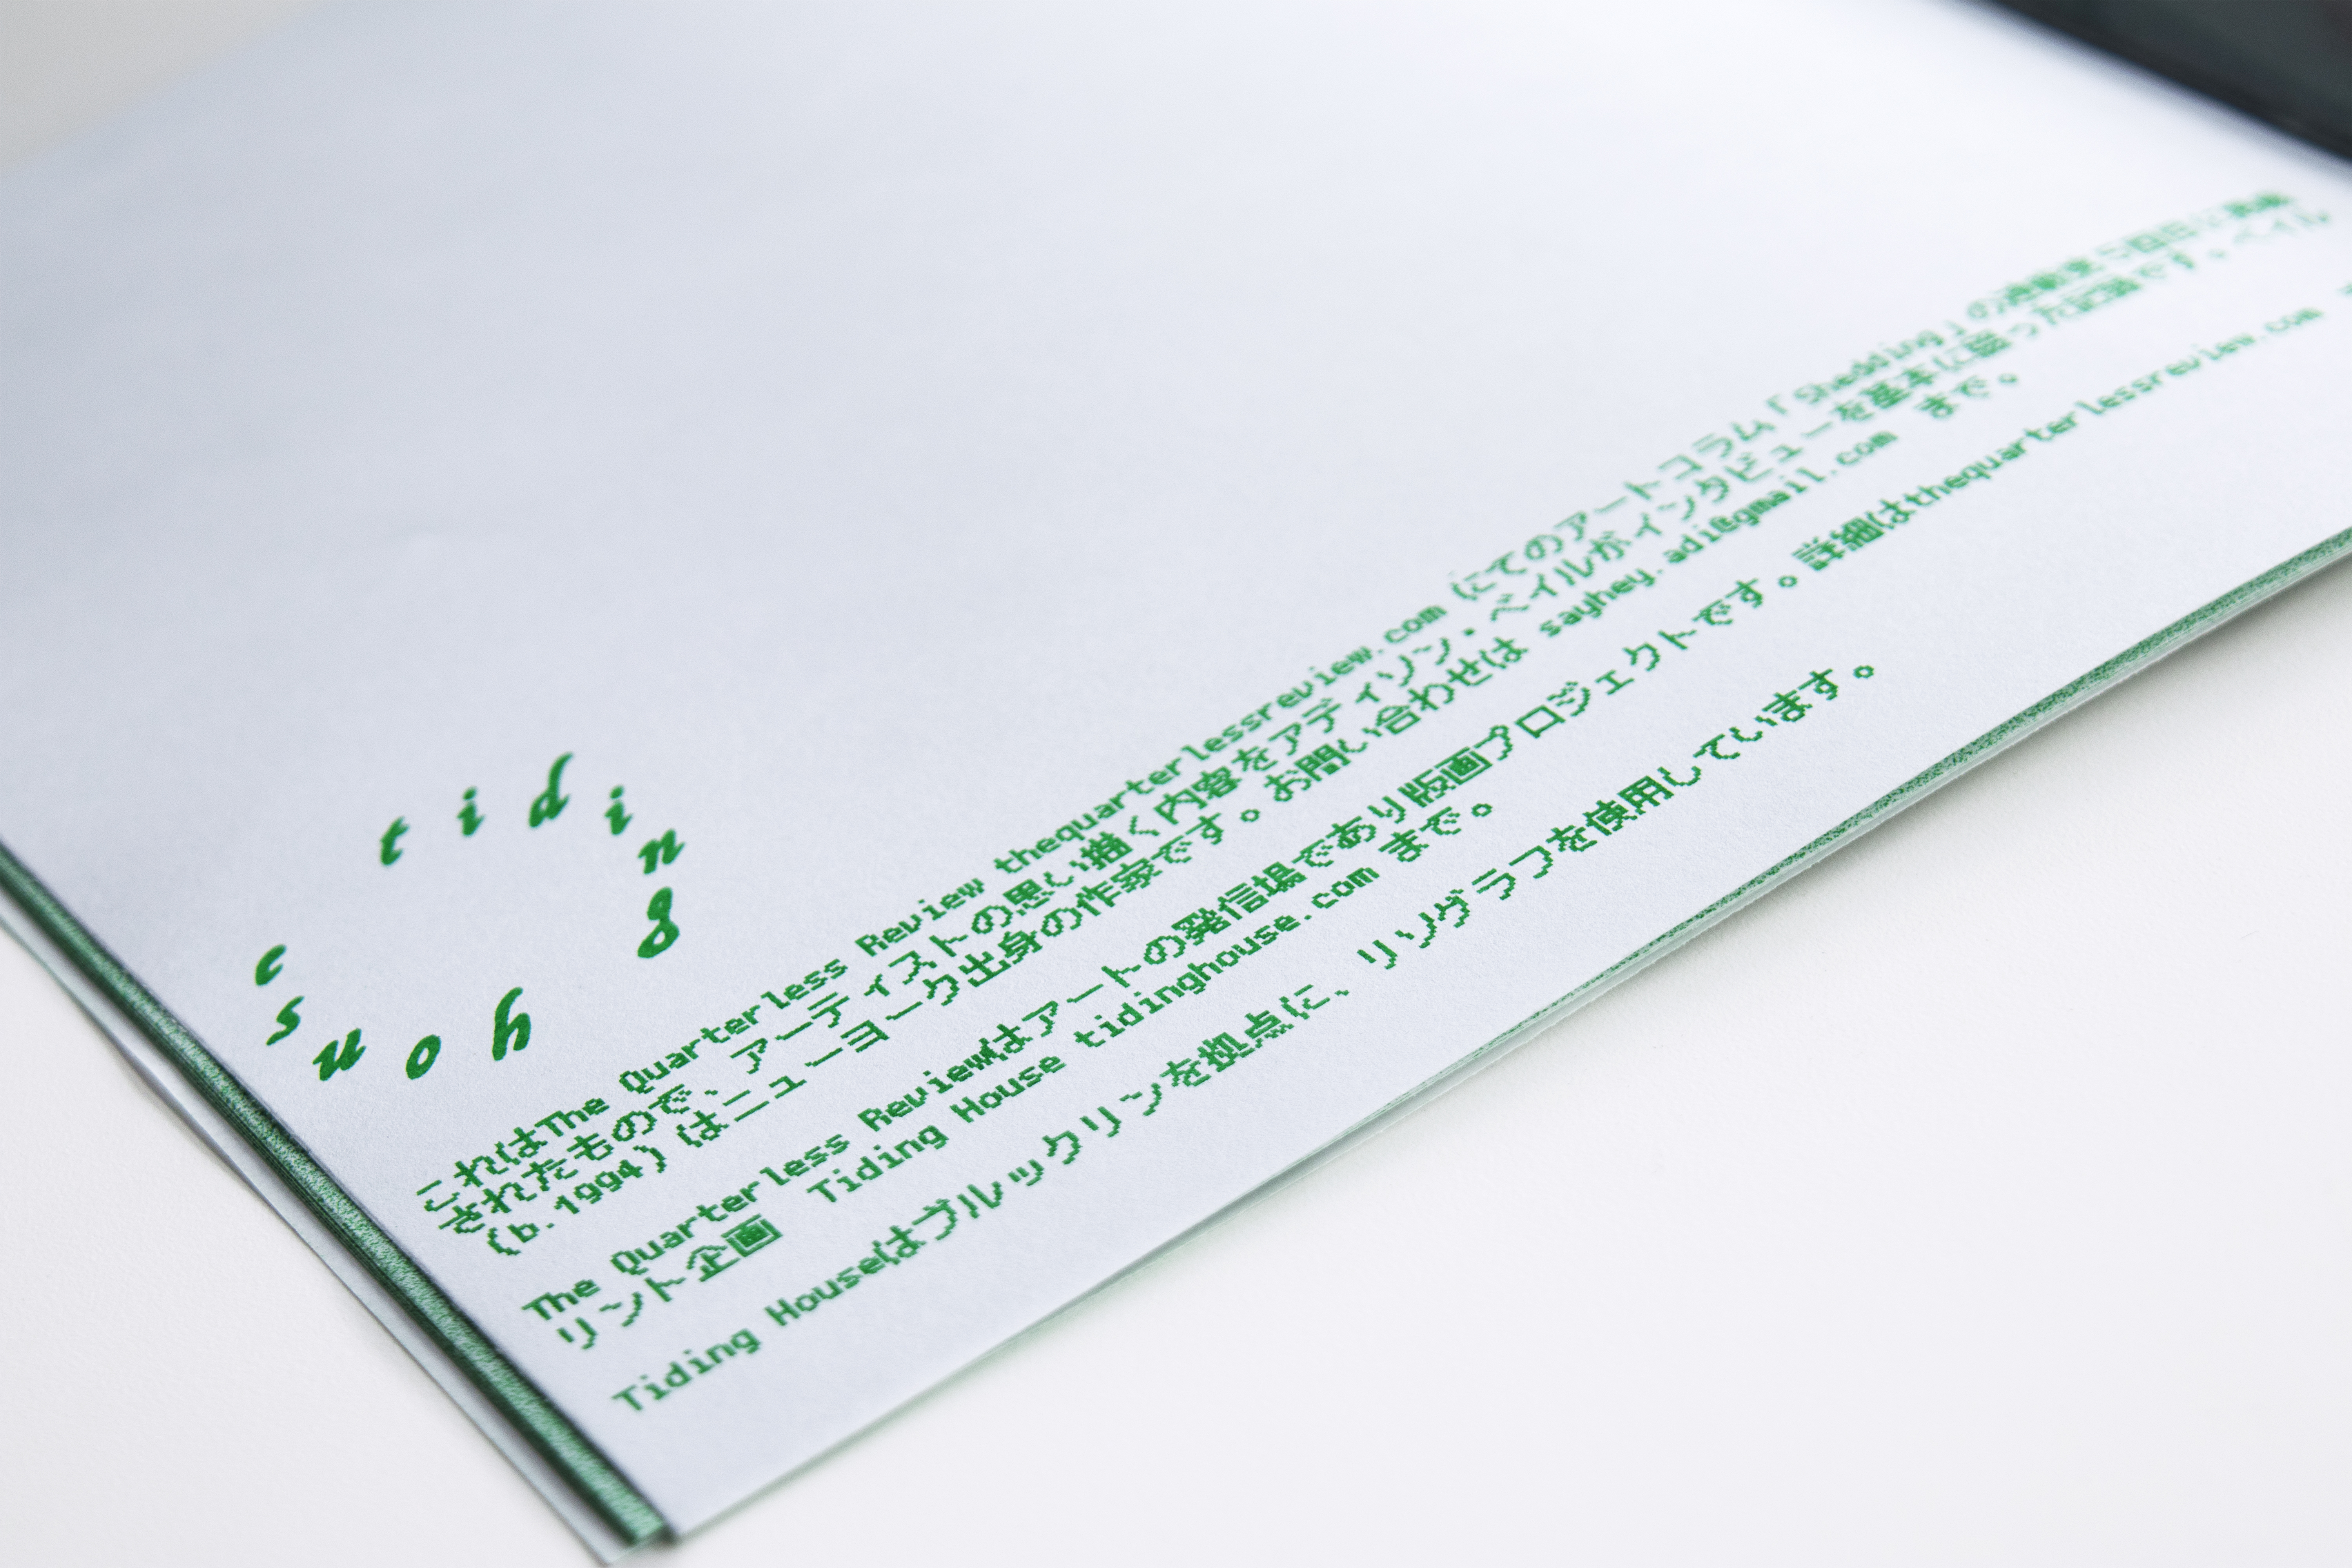 tiding
house
これはThe Quarterless Review thequarterlessreview.com にてのアートコラム「Shedding」の連載第5回目に掲載
されたもので、アーティストの思い描く内容をアディソン・ベイルがインタビューを基本に綴った記事です。ベイル
(b.1994) はニューヨーク出身の作家です。お問い合わせは sayhey.adi@gmail.com まで。
The Quarterless Reviewはアートの発信場であり版画プロジェクトです。詳細はthequarterlessreview.com
リント企画 Tiding House tidinghouse.com まで。
Tiding Houseはブルックリンを拠点に、リソグラフを使用しています。